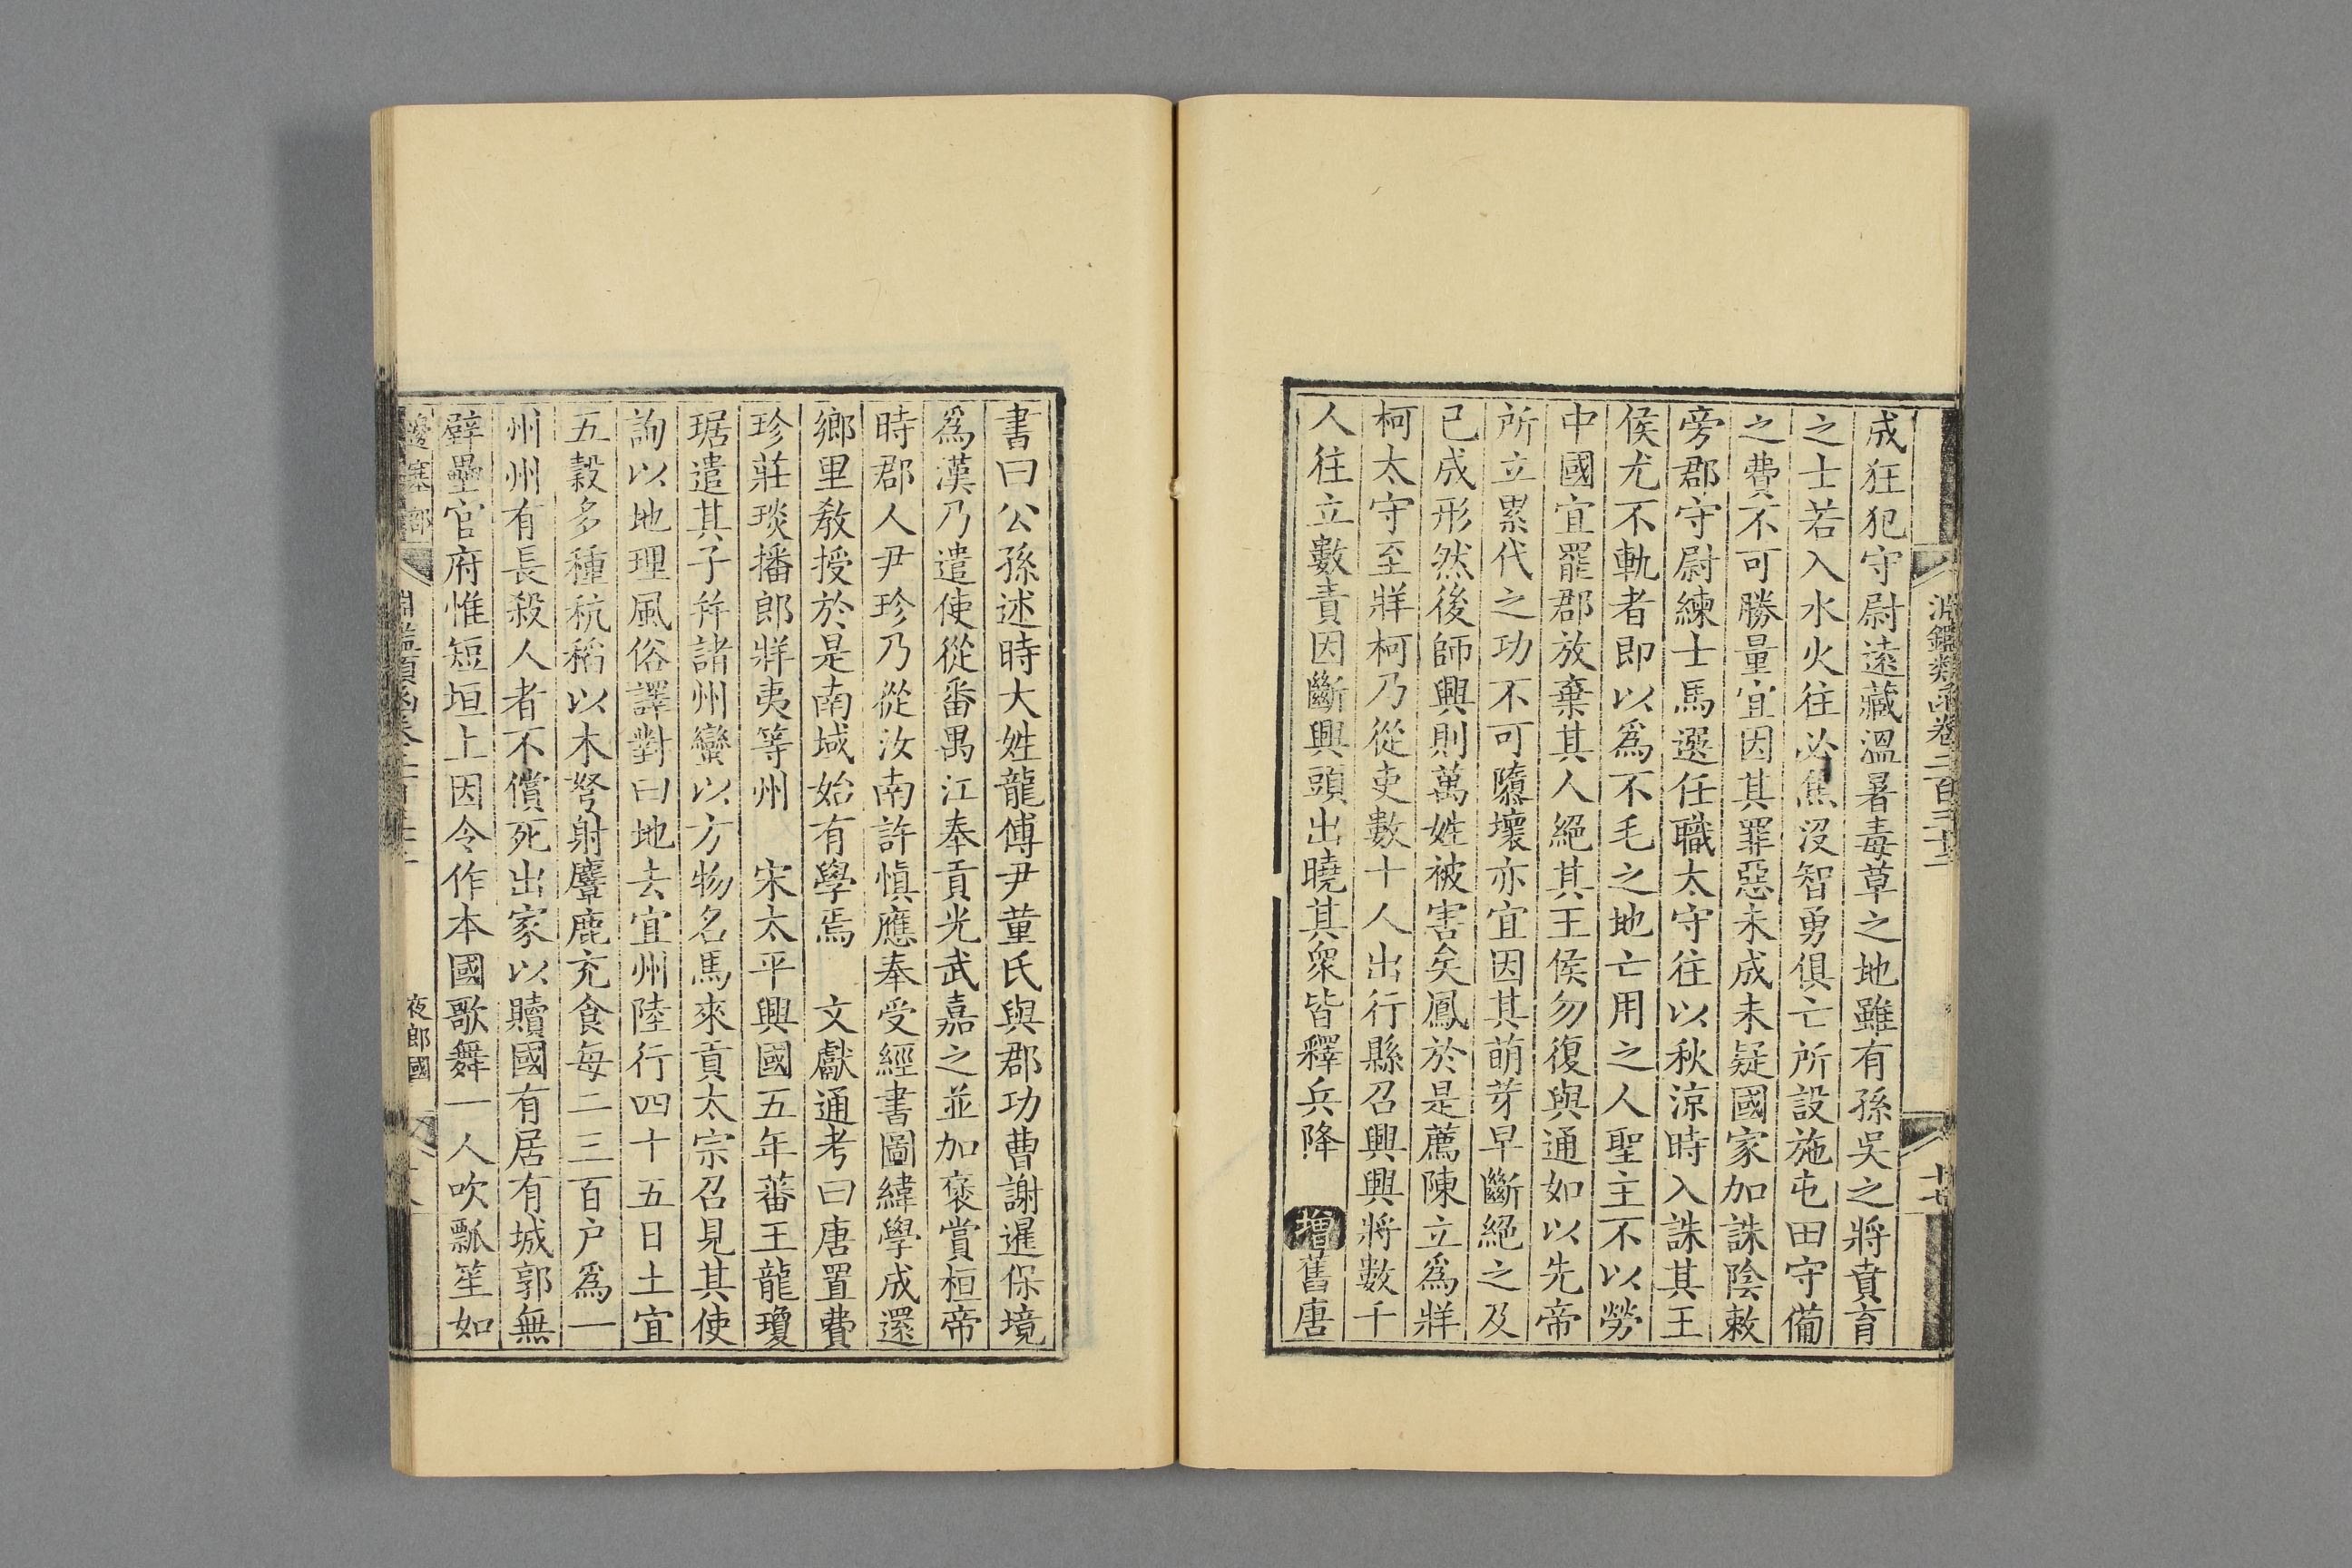 淵鑑類函卷二百三十二
十七
成狂犯守尉遠藏溫暑毒草之地雖有孫吳之將賁育
之士若入水火往必焦沒智勇俱亡所設施屯田守備
之費不可勝量宜因其罪惡未成未疑國家加誅陰敕
旁郡守尉練士馬選任職太守往以秋涼時入誅其王
侯尤不軌者即以爲不毛之地亡用之人聖主不以勞
中國宜罷郡放棄其人絕其王侯勿復與通如以先帝
所立累代之功不可隳壞亦宜因其萌芽早斷絕之及
已成形然後師興則萬姓被害矣鳳於是薦陳立爲牂
柯太守至牂柯乃從吏數十人出行縣召興興將數千
人往立數責因斷興頭出曉其衆皆釋兵降 增舊唐
書曰公孫述時大姓龍傅尹董氏與郡功曹謝暹保境
爲漢乃遣使從番禺江奉貢光武嘉之並加褒賞桓帝
時郡人尹珍乃從汝南許慎應奉受經書圖緯學成還
鄉里教授於是南域始有學焉 文獻通考曰唐置費
珍莊琰播郎牂夷等州 宋太平興國五年蕃王龍瓊
琚遣其子并諸州蠻以方物名馬來貢太宗召見其使
詢以地理風俗譯對曰地去宜州陸行四十五日土宜
五穀多種秔稻以木弩射麞鹿充食每二三百户爲一
州州有長殺人者不償死出家以贖國有居有城郭無
壁壘官府惟短垣上因令作本國歌舞一人吹瓢笙如
邊塞部
夜郎國